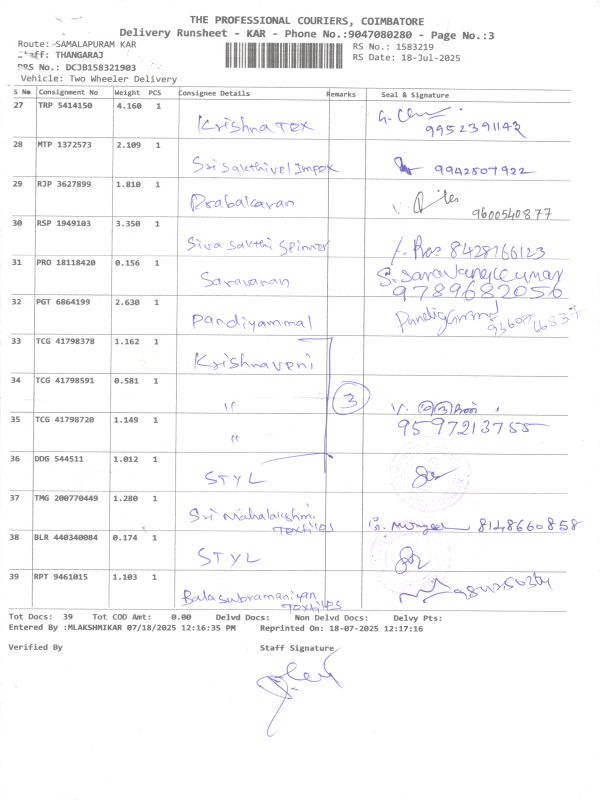 THE PROFESSIONAL COURIERS, COIMBATORE
Delivery Runsheet - KAR - Phone No.:9047080280 - Page No.:3
Route: SAMALAPURAM KAR RS No.: 1583219
Staff: THANGARAJ RS Date: 18-Jul-2025
DRS No.: DCJB158321903
Vehicle: Two Wheeler Delivery
S No Consignment No Weight PCS Consignee Details Remarks Seal & Signature
27 TRP 5414150 4.160 1 Krishna Tex 9952391142
28 MTP 1372573 2.109 1 Sri Sakthivel Impex 9942507922
29 RJP 3627899 1.810 1 Prabakaran 9600540877
30 RSP 1949103 3.350 1 Siva Sakthi Spinner 8428766123
31 PRO 18118420 0.156 1 Saravanan S. Saravanakumar
9789682056
32 PGT 6864199 2.630 1 Pandiyammal
33 TCG 41798378 1.162 1 Krishnaveni
34 TCG 41798591 0.581 1 " 3
35 TCG 41798720 1.149 1 " 9597213755
36 DDG 544511 1.012 1 STYL
37 TMG 200770449 1.280 1 Sri Mahalakshmi
Textiles 8148660858
38 BLR 440340084 0.174 1 STYL
39 RPT 9461015 1.103 1 Balasubramaniyan
Textiles
Tot Docs: 39 Tot COD Amt: 0.00 Delvd Docs: Non Delvd Docs: Delvy Pts:
Entered By :MLAKSHMIKAR 07/18/2025 12:16:35 PM Reprinted On: 18-07-2025 12:17:16
Verified By Staff Signature